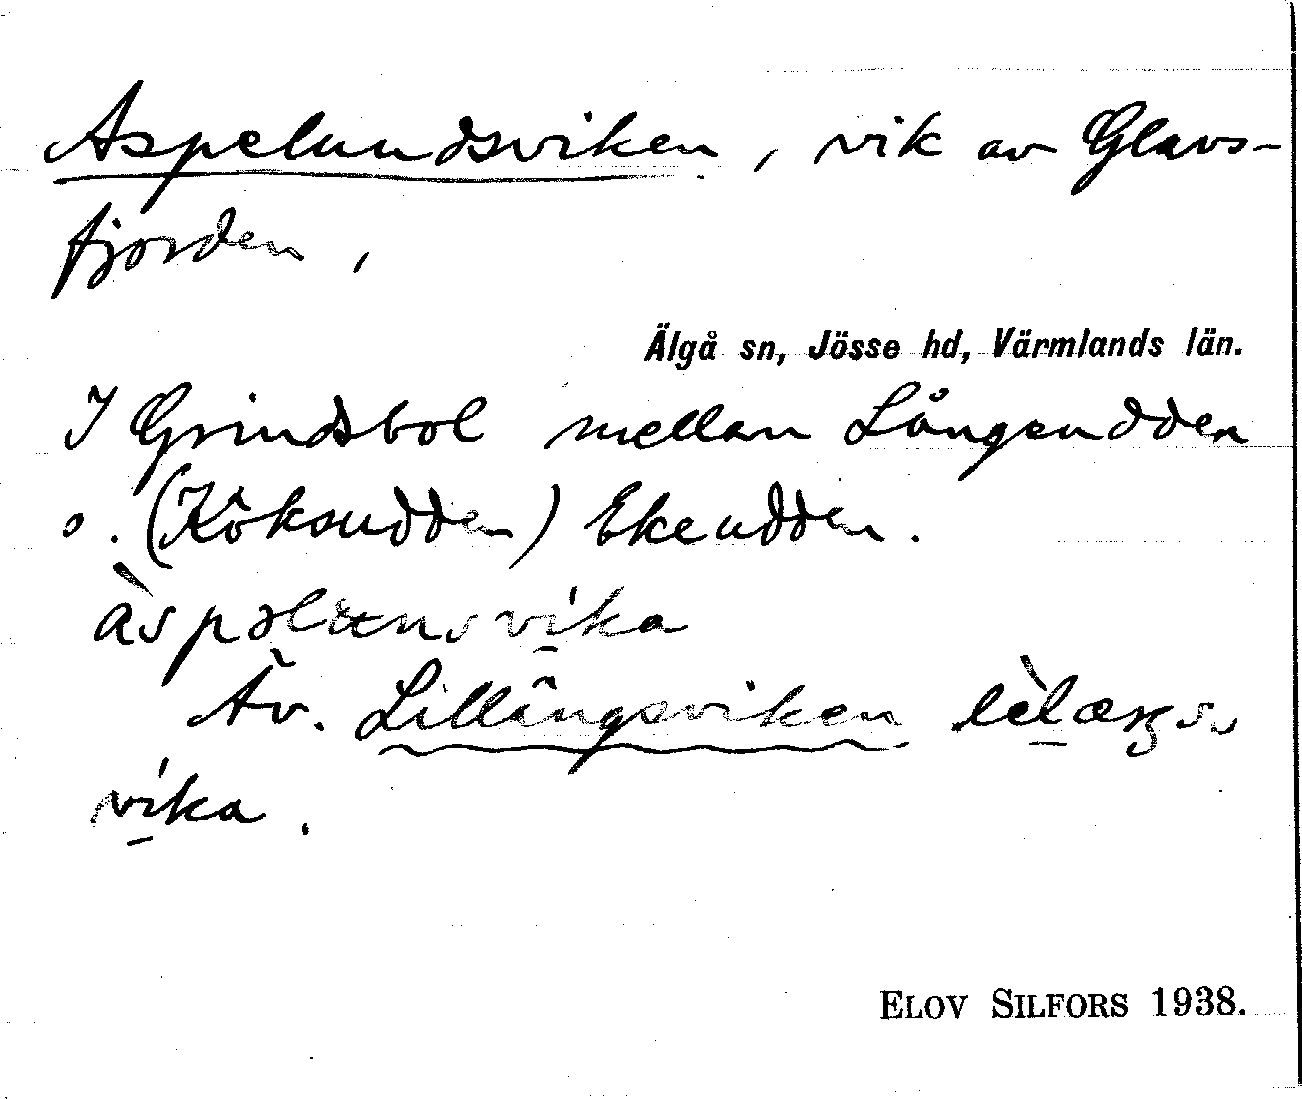 Aspelundsviken, vik av Glavs-
fjorden,
Älgå sn, Jösse hd, Värmlands län.
I Grindsbol mellan Långeudden
o. (Köksudden) Ekeudden.
àspəlunsvika
Äv. Lillängsviken lèlæŋs-
vika.
ELOV SILFORS 1938.